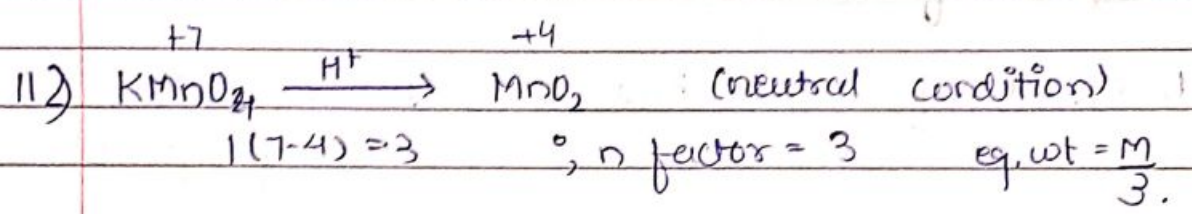 +7 +4
11) KMnO4 H+ → MnO2 : (neutral condition)
1(7-4) = 3 °, n factor = 3 eq. wt = M/3.